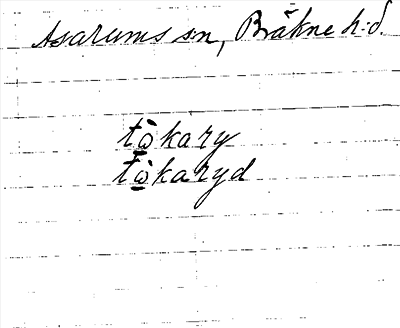 Asarums sn, Bräkne h:d.
tò̲kary
tò̲karyd